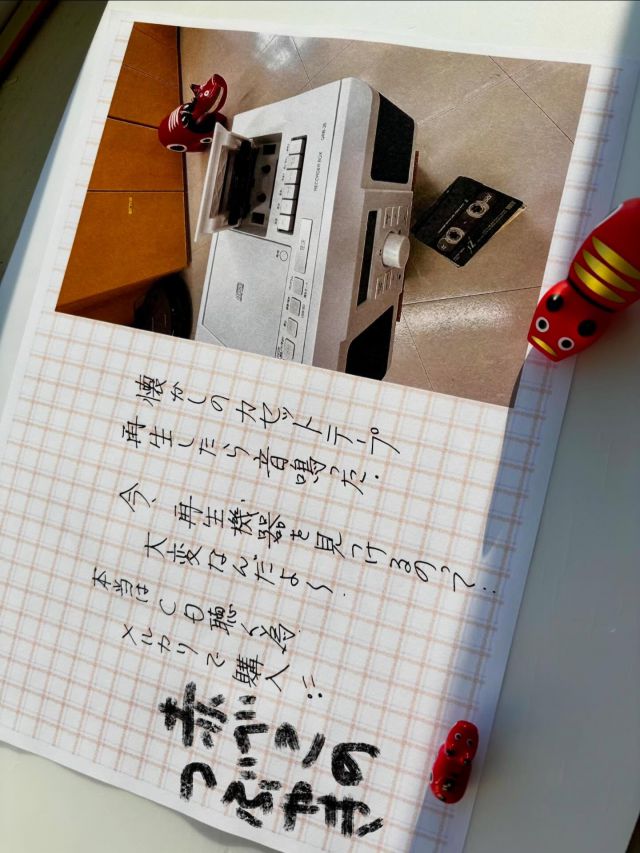 RECORDER BOX
懐かしのカセットテープ
再生したら音鳴った.
今、再生機器を見つけるのって..
大変なんだよ〜.
本当はCD聴く為
メルカリで購入
赤べこの
つぶやき